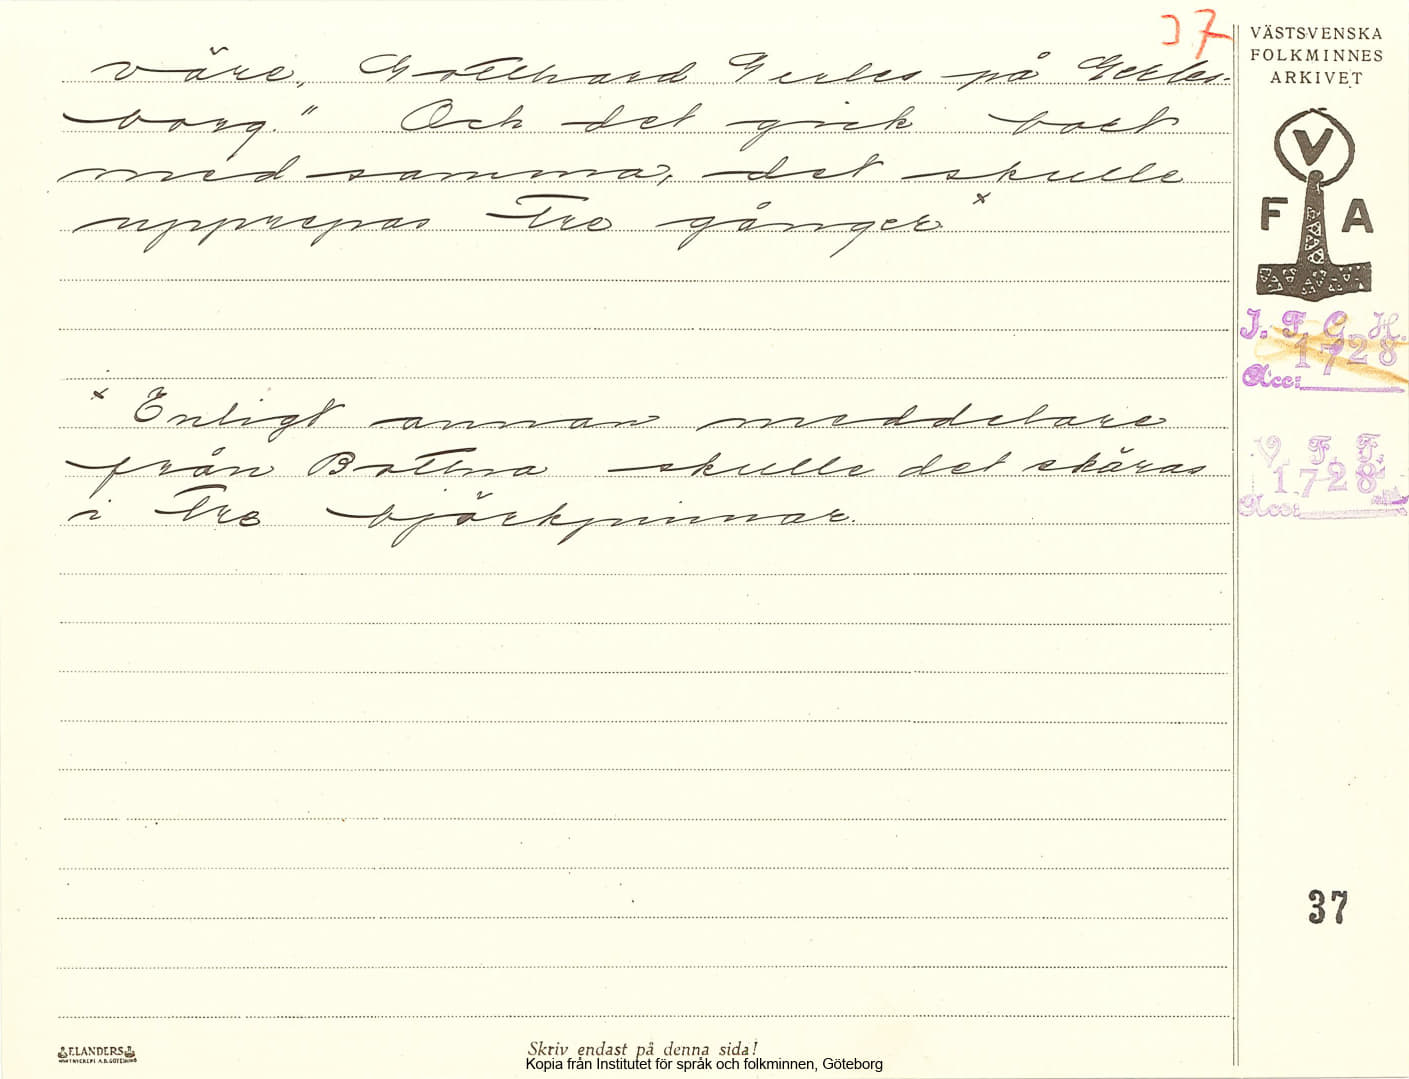 37
väre, Gotthard Gerles på Gerles-
borg." Och det gick bort
med samma, det skulle
upprepas tre gånger. x
x Enligt annan meddelare
från Bottna skulle det skäras
i tre björkpinnar.
VÄSTSVENSKA
FOLKMINNES
ARKIVET
V
F A
I. F. G. H.
1728
Acc:
V. F. F.
1728
Acc:
37
ELANDERS
Skriv endast på denna sida!
Kopia från Institutet för språk och folkminnen, Göteborg